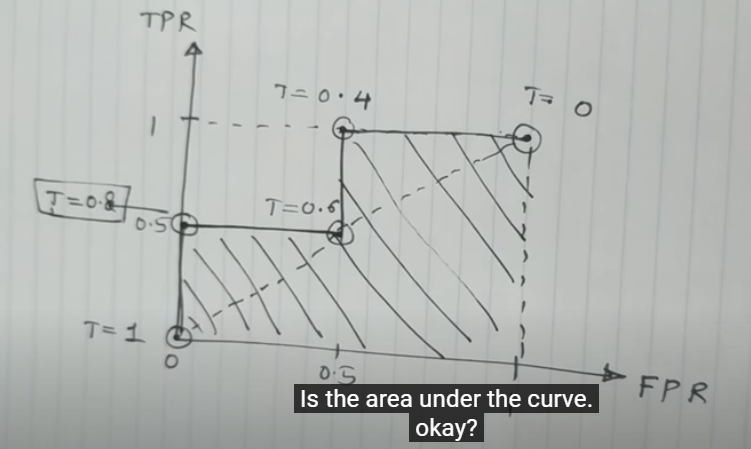 TPR
T = 0.4
T = 0
1
T = 0.8
T = 0.6
0.5
T = 1
0
0.5
FPR
Is the area under the curve.
okay?